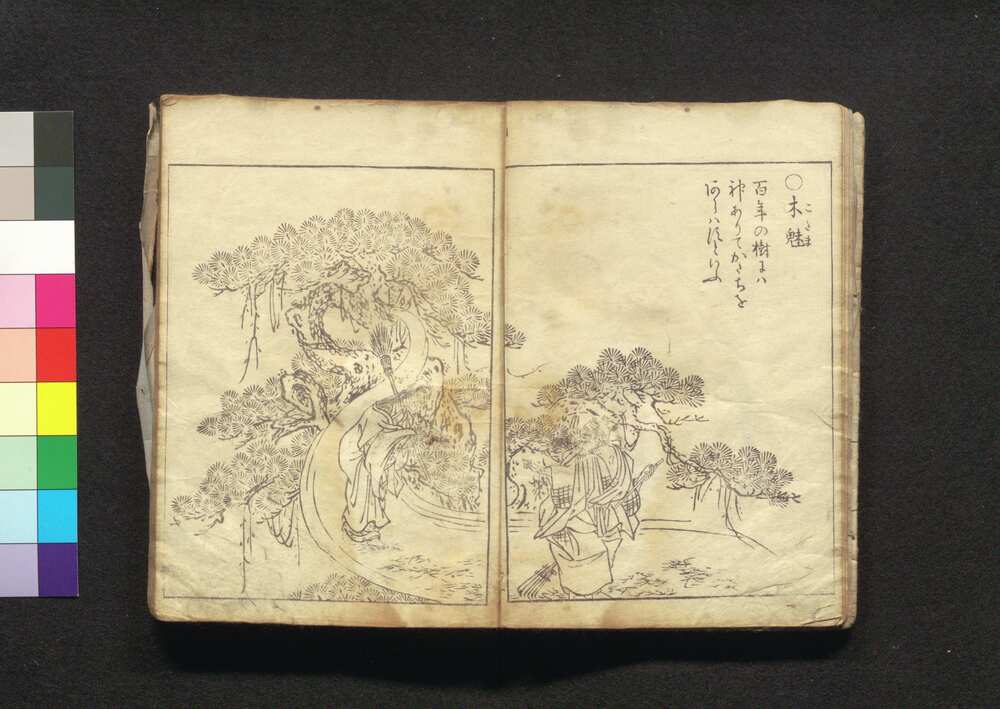 ○木魅
こたま
百年の樹には
神ありてかたちを
あらはすといふ